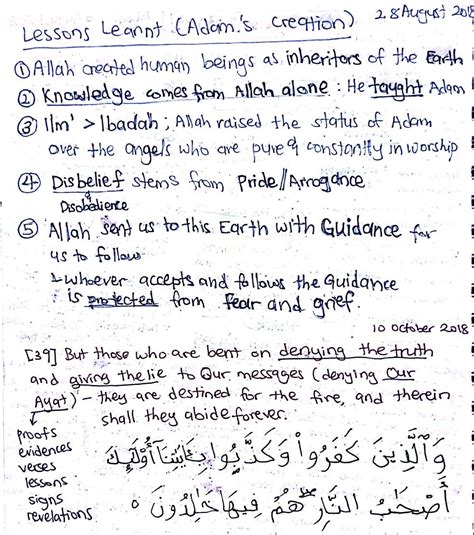 Lessons Learnt (Adam's Creation) 28 August 2018
① Allah created human beings as inheritors of the Earth
② Knowledge comes from Allah alone : He taught Adam
③ Ilm' > Ibadah ; Allah raised the status of Adam
over the angels who are pure & constantly in worship
④ Disbelief stems from Pride//Arrogance
Disobedience
⑤ Allah sent us to this Earth with Guidance for
us to follow
whoever accepts and follows the Guidance
is protected from fear and grief.
10 October 2018
[39] But those who are bent on denying the truth
and giving the lie to Our messages (denying Our
Ayat) – they are destined for the fire, and therein
shall they abide forever.
proofs
evidences
verses
lessons
signs
revelations
وَٱلَّذِينَ كَفَرُواْ وَكَذَّبُواْ بِـَٔايَـٰتِنَآ أُوْلَـٰٓئِكَ
أَصْحَـٰبُ النَّارِ ۖ هُمْ فِيهَا خَـٰلِدُونَ